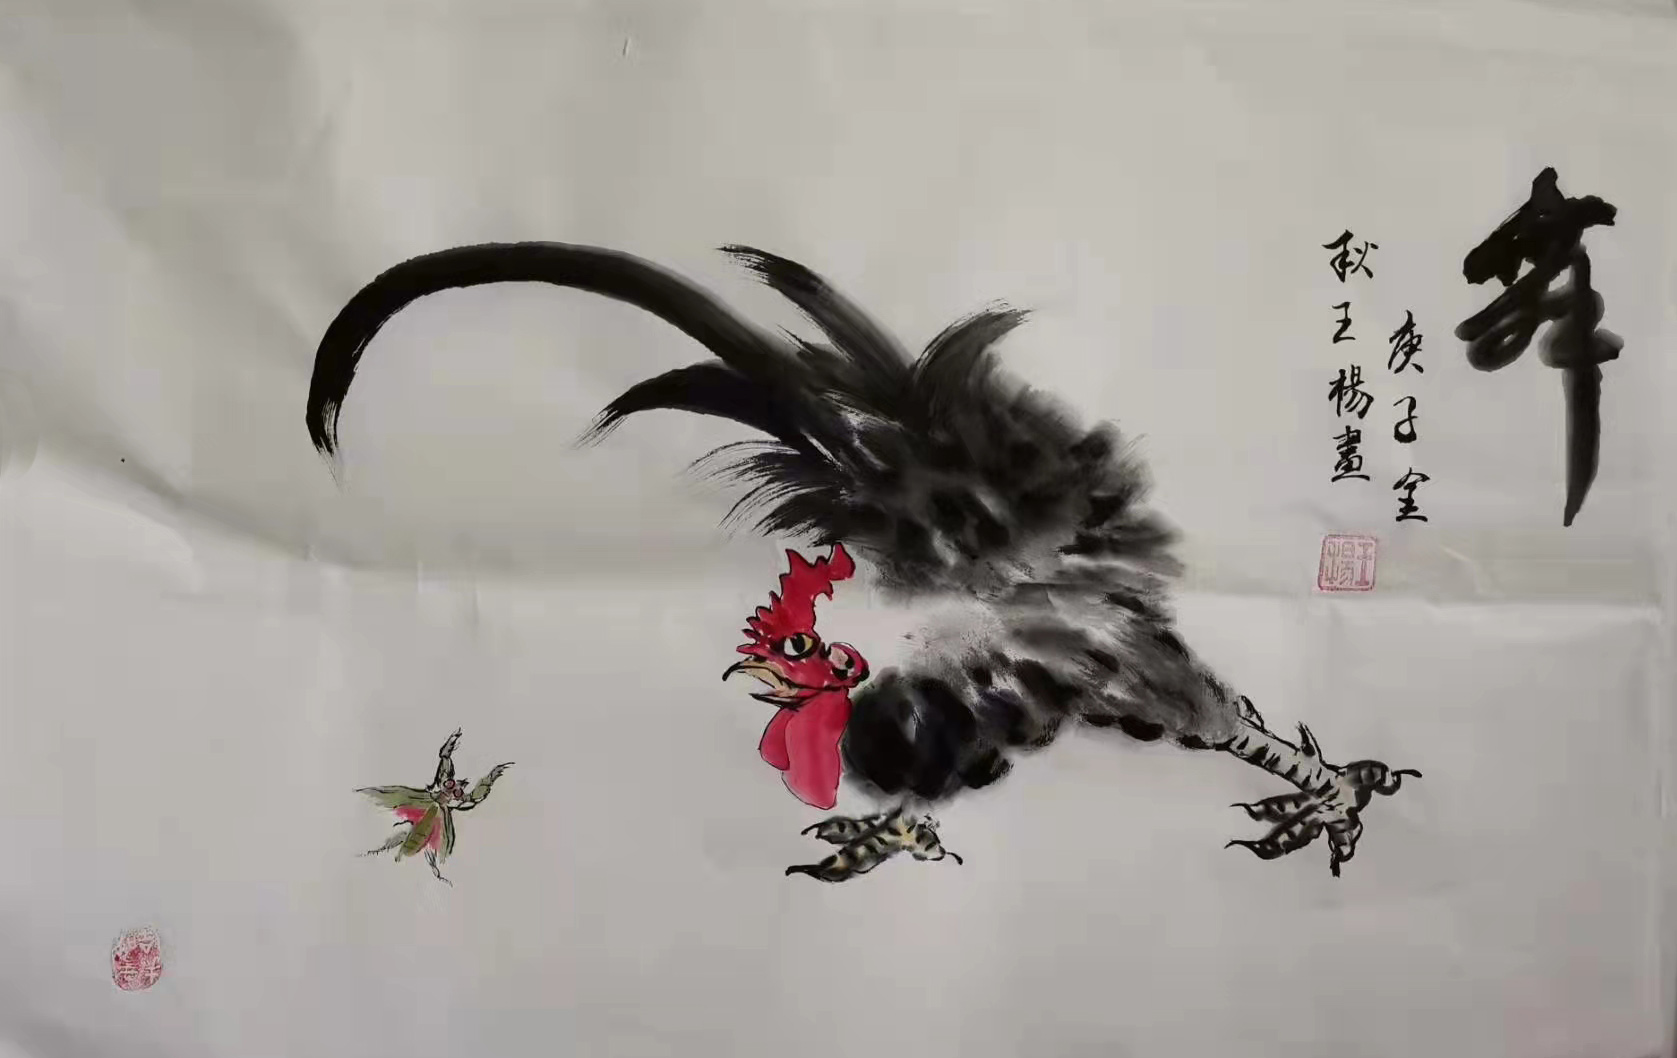 舞
庚子金
秋王楊畫
王楊